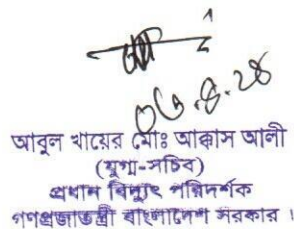 ০৩.৪.২৪
আবুল খায়ের মোঃ আক্কাস আলী
(যুগ্ম-সচিব)
প্রধান বিদ্যুৎ পরিদর্শক
গণপ্রজাতন্ত্রী বাংলাদেশ সরকার।